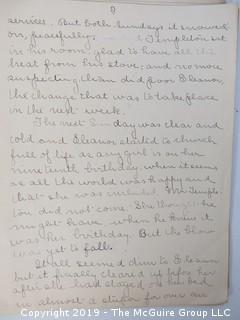 9
services. But both Sundays it snowed
on, peacefully. Templeton sat
in his room, glad to have all the
heat from his stove; and no more
suspecting than did poor Eleanor,
the change that was to take place
in the next week.
The next Sunday was clear and
cold and Eleanor started to church
full of life as any girl is on her
nineteenth birthday, when it seems
as all the world was happy and
that she was Mr. Temple-
ton did not come. She thought he
might have when he knew it
was her birthday. But the blow
was yet to fall.
It all seemed dim to Eleanor
but it finally cleared up before her
after she had stayed on her bed
in almost a stupor for over an
Copyright 2019 - The McGuire Group LLC